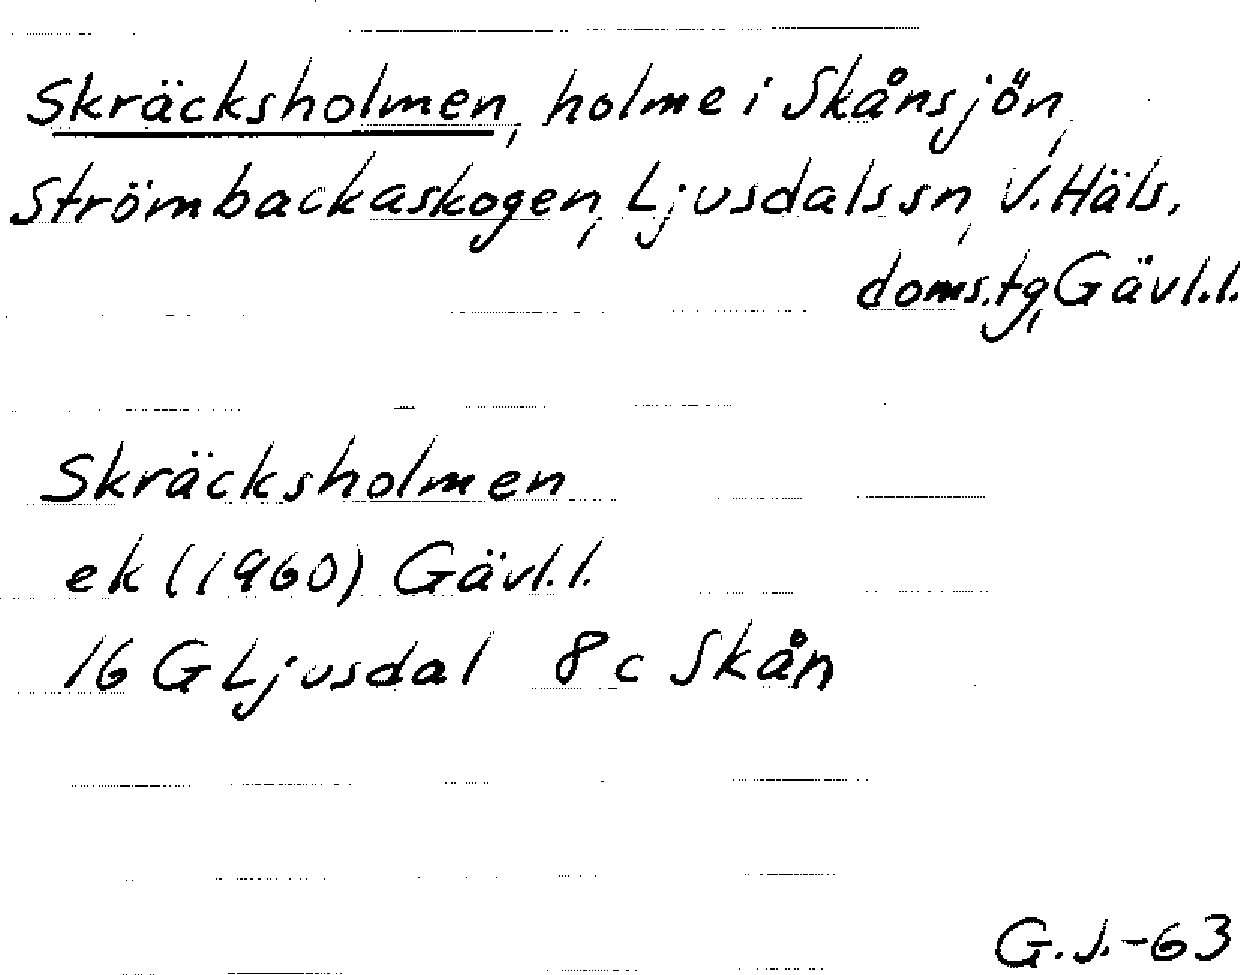 Skräcksholmen, holme i Skånsjön,
Strömbackaskogen, Ljusdals sn, V. Häls.
doms.tg, Gävl.l.
Skräcksholmen
ek (1960) Gävl.l.
16 G Ljusdal 8 c Skån
G.J.-63